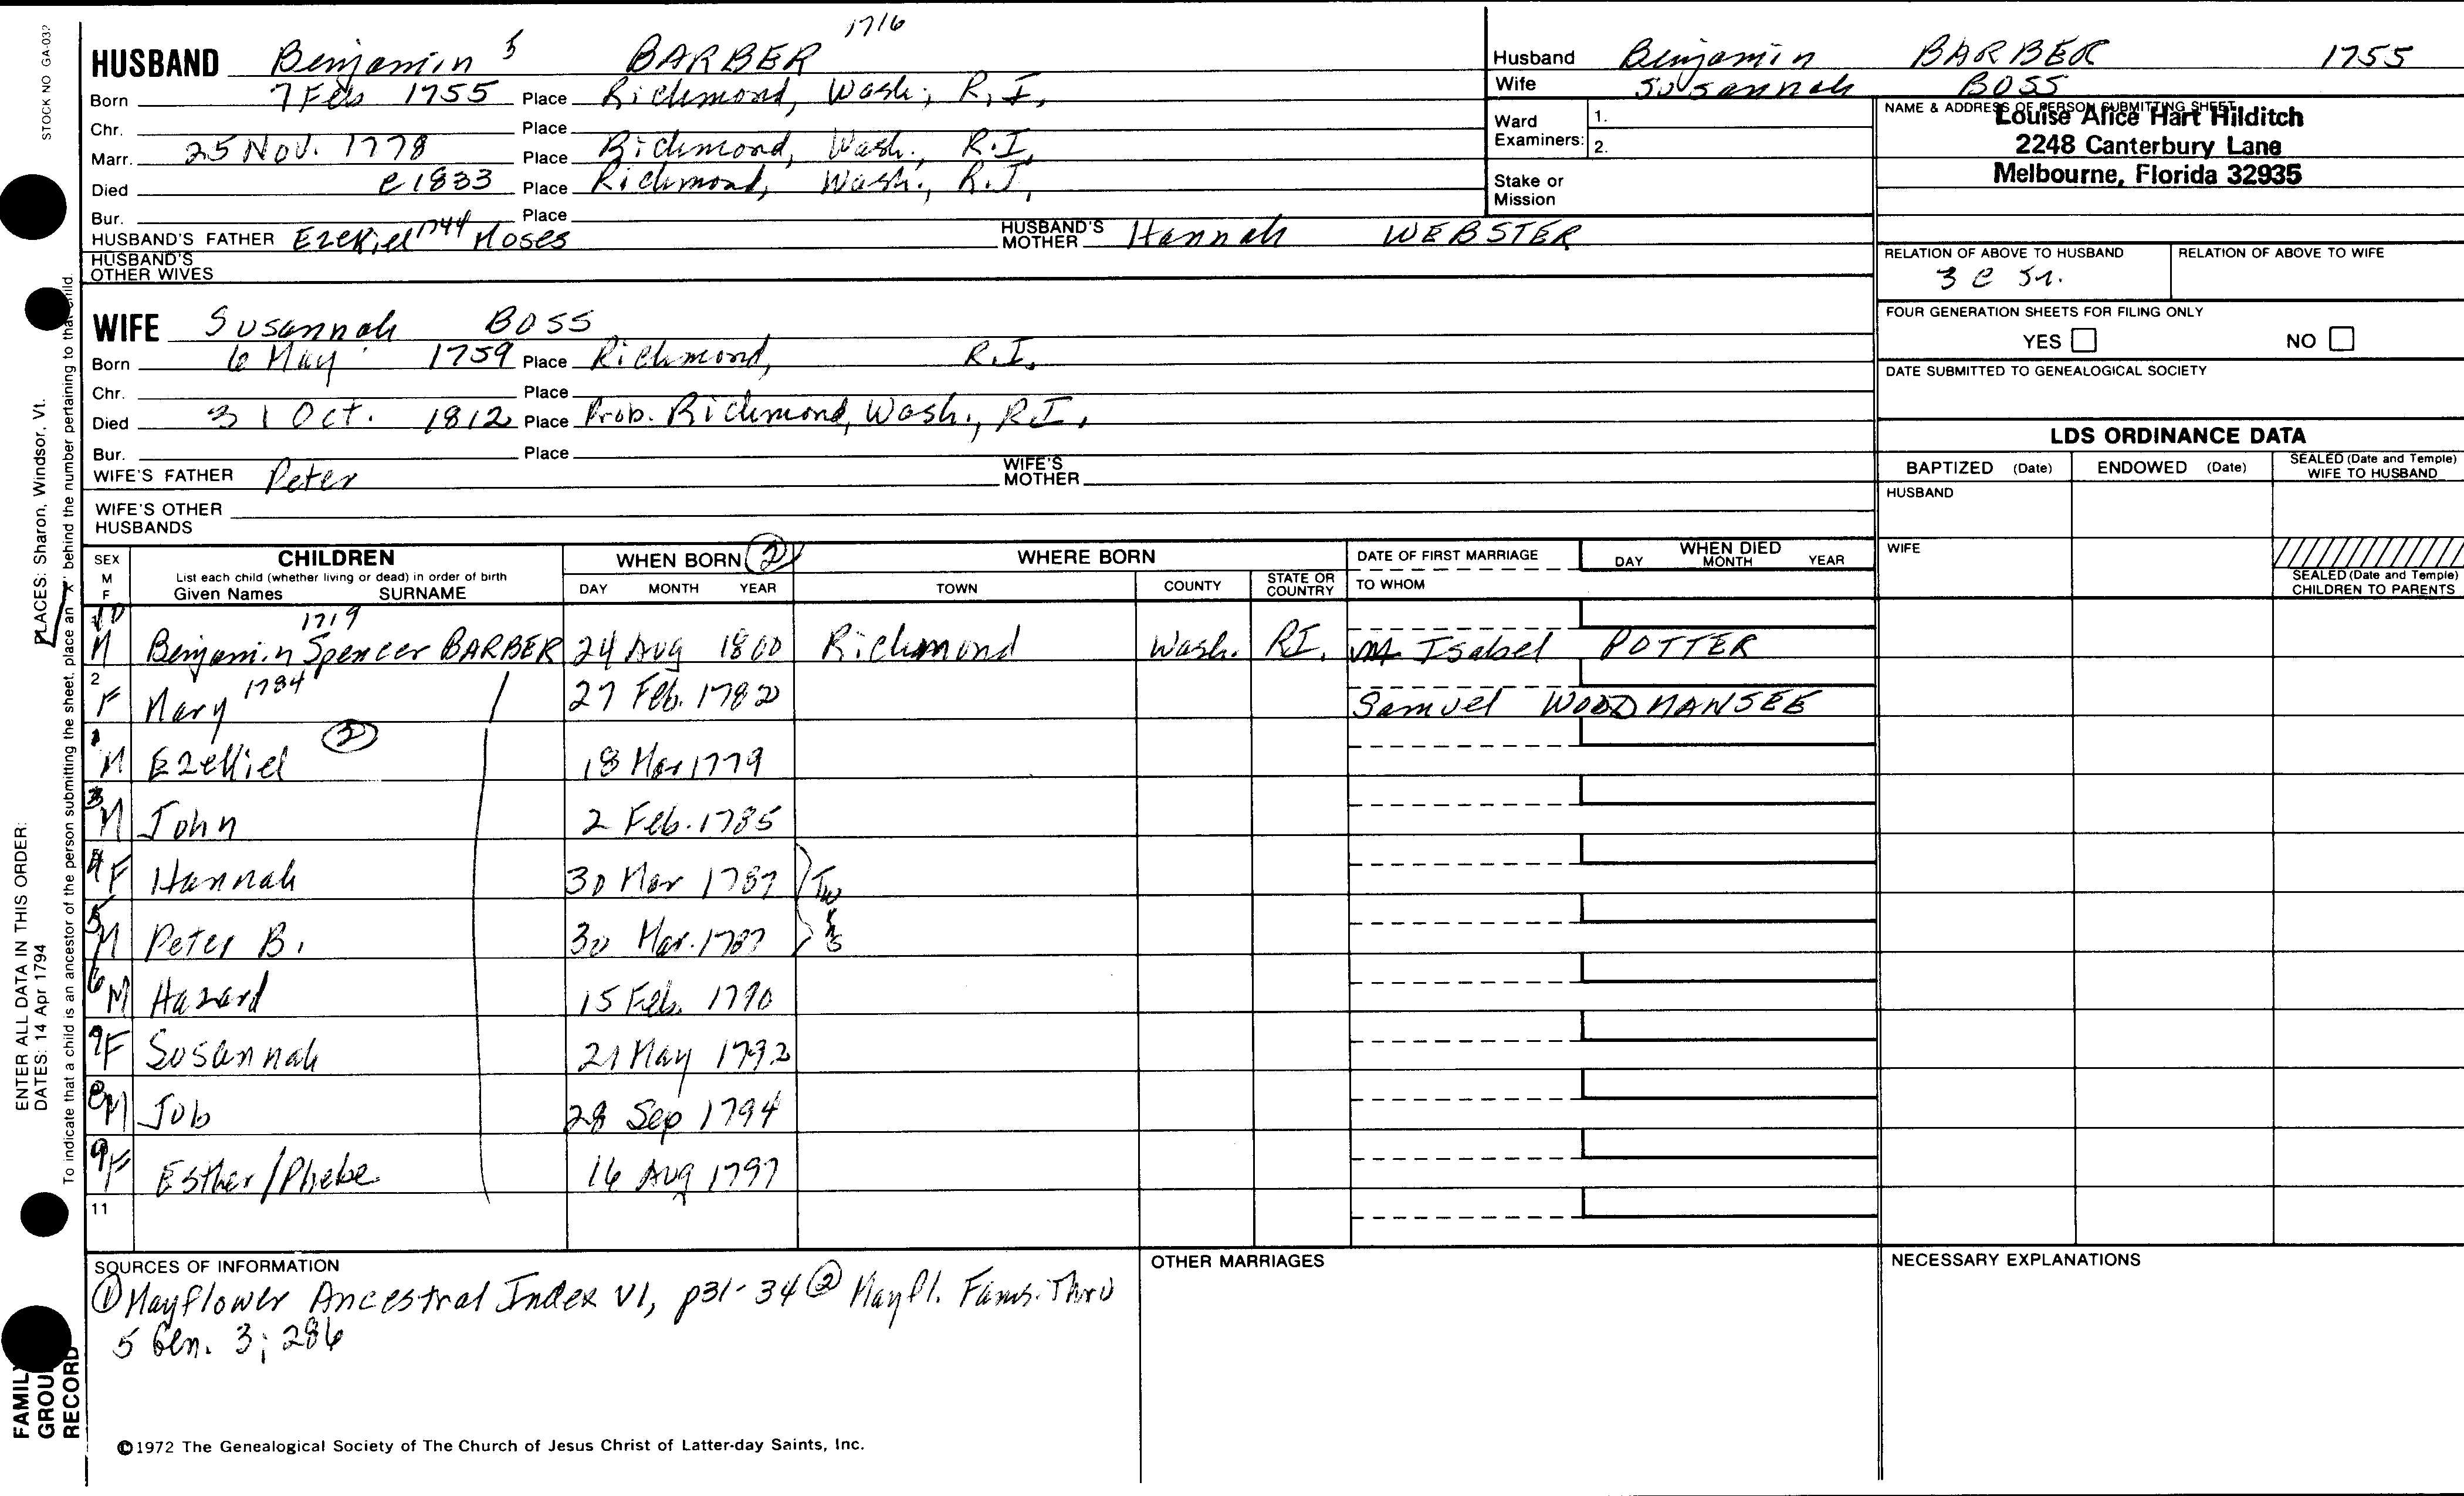 STOCK NO GA-032
1716
HUSBAND Benjamin 5 BARBER
Born 7 Feb 1755 Place Richmond, Wash., R.I.
Chr. Place
Marr. 25 Nov. 1778 Place Richmond, Wash., R.I.
Died c1833 Place Richmond, Wash., R.I.
Bur. Place
HUSBAND'S FATHER Ezekiel 1744 Moses HUSBAND'S MOTHER Hannah WEBSTER
HUSBAND'S OTHER WIVES
WIFE Susannah BOSS
Born 6 May 1759 Place Richmond, R.I.
Chr. Place
Died 31 Oct. 1812 Place Prob. Richmond, Wash., R.I.
Bur. Place
WIFE'S FATHER Peter WIFE'S MOTHER
WIFE'S OTHER HUSBANDS
Husband Benjamin BARBER 1755
Wife Susannah BOSS
Ward Examiners: 1.
2.
Stake or Mission
NAME & ADDRESS OF PERSON SUBMITTING SHEET
Louise Alice Hart Hilditch
2248 Canterbury Lane
Melbourne, Florida 32935
RELATION OF ABOVE TO HUSBAND RELATION OF ABOVE TO WIFE
3 c 5r.
FOUR GENERATION SHEETS FOR FILING ONLY
YES NO
DATE SUBMITTED TO GENEALOGICAL SOCIETY
LDS ORDINANCE DATA
BAPTIZED (Date) ENDOWED (Date) SEALED (Date and Temple) WIFE TO HUSBAND
HUSBAND
WIFE
SEALED (Date and Temple) CHILDREN TO PARENTS
SEX M F CHILDREN WHEN BORN 2 WHERE BORN DATE OF FIRST MARRIAGE WHEN DIED
List each child (whether living or dead) in order of birth
Given Names SURNAME DAY MONTH YEAR TOWN COUNTY STATE OR COUNTRY TO WHOM DAY MONTH YEAR
1719
10 M Benjamin Spencer BARBER 24 Aug 1800 Richmond Wash. RI. Isabel POTTER
2 F Mary 1784 27 Feb. 1782 Samuel WOODMANSEE
1 M Ezekiel 2 18 Mar 1779
3 M John 2 Feb. 1785
4 F Hannah 30 Mar 1787 Twins
5 M Peter B. 30 Mar. 1787
6 M Hazard 15 Feb. 1790
7 F Susannah 21 May 1792
8 M Job 28 Sep 1794
9 F Esther/Phebe 16 Aug 1797
11
SOURCES OF INFORMATION
① Mayflower Ancestral Index V1, p31-34 ② Mayfl. Fams. Thru
5 Gen. 3; 286
OTHER MARRIAGES
NECESSARY EXPLANATIONS
©1972 The Genealogical Society of The Church of Jesus Christ of Latter-day Saints, Inc.
ENTER ALL DATA IN THIS ORDER:
DATES: 14 Apr 1794
PLACES: Sharon, Windsor, Vt.
To indicate that a child is an ancestor of the person submitting the sheet, place an "X" behind the number pertaining to that child.
FAMILY
GROUP
RECORD